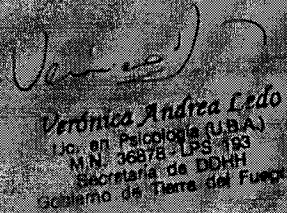 Verónica Andrea Ledo
Lic. en Psicología (U.B.A.)
M.N. 36878 LPS 193
Secretaría de DDHH
Gobierno de Tierra del Fuego